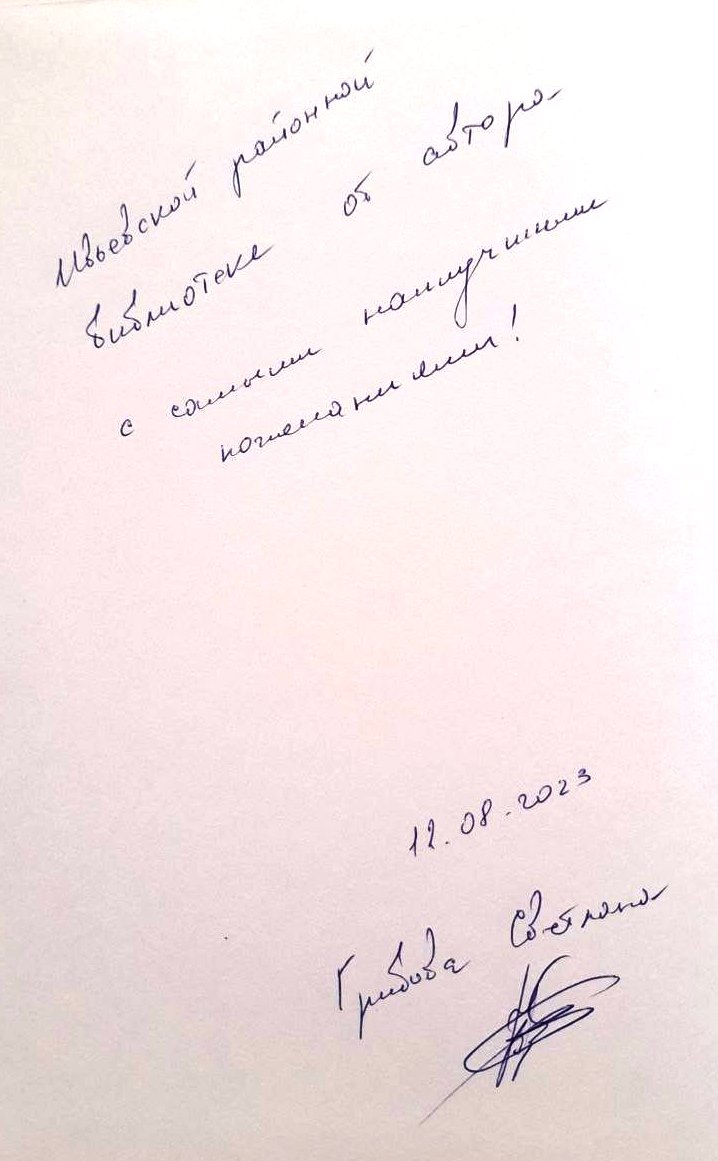 Ивьевской районной
библиотеке от автора
с самыми наилучшими
пожеланиями!
12.08.2023
Грибова Светлана